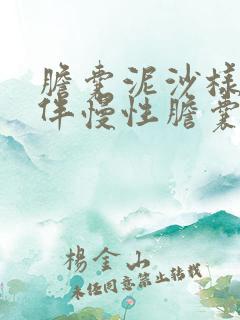 膽囊泥沙樣
伴慢性膽囊
楊金山
未經同意禁止轉載